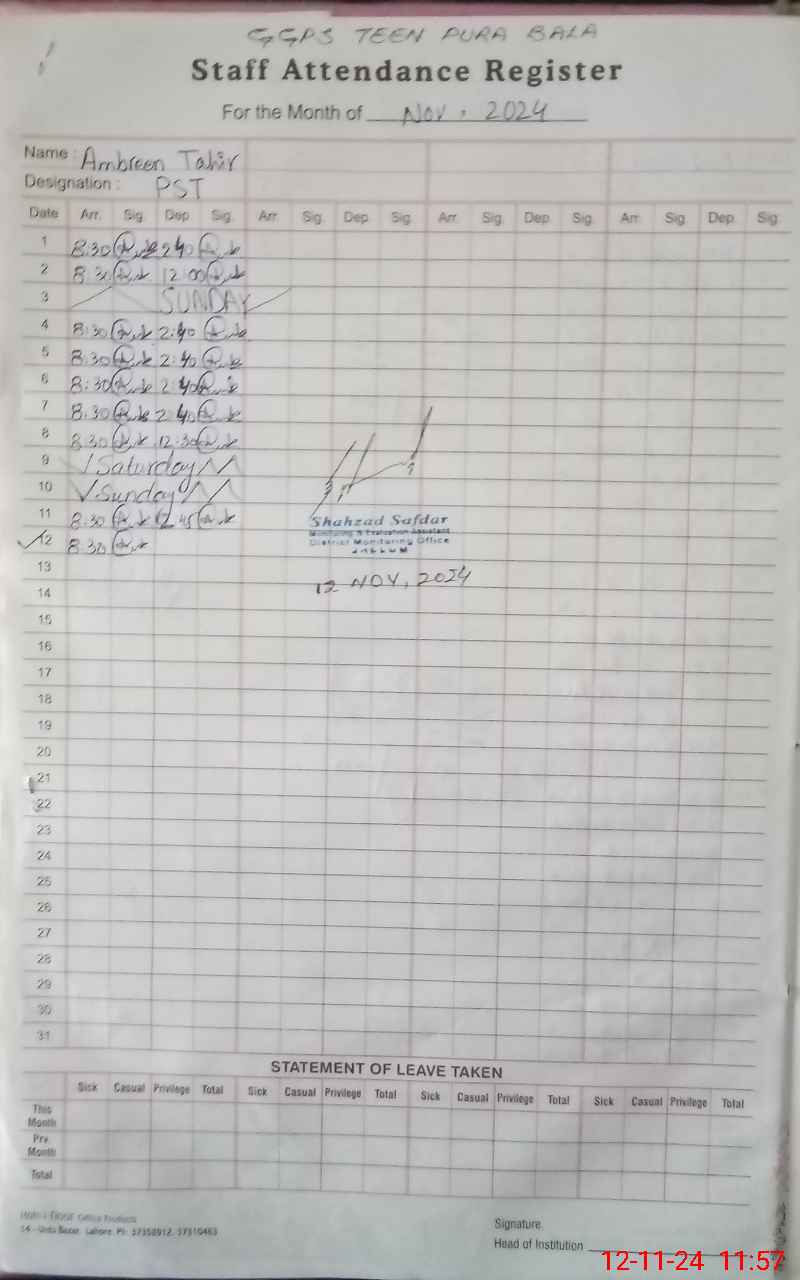 GGPS TEEN PURA BALA
Staff Attendance Register
For the Month of Nov. 2024
Name : Ambreen Tahir
Designation : PST
Date Arr. Sig. Dep. Sig. Arr. Sig. Dep. Sig. Arr. Sig. Dep. Sig. Arr. Sig. Dep. Sig.
1 8:30 2:40
2 8:30 12:00
3 SUNDAY
4 8:30 2:40
5 8:30 2:40
6 8:30 2:40
7 8:30 2:40
8 8:30 12:30
9 Saturday
10 Sunday
11 8:30 2:45
12 8:30
Shahzad Safdar
Monitoring & Evaluation Assistant
District Monitoring Office
JHELUM
13
12 NOV, 2024
14
15
16
17
18
19
20
21
22
23
24
25
26
27
28
29
30
31
STATEMENT OF LEAVE TAKEN
Sick Casual Privilege Total Sick Casual Privilege Total Sick Casual Privilege Total Sick Casual Privilege Total
This Month
Prv. Month
Total
Office Products
14 - Urdu Bazar, Lahore. Ph: 37358912, 37310463
Signature.
Head of Institution
12-11-24 11:57